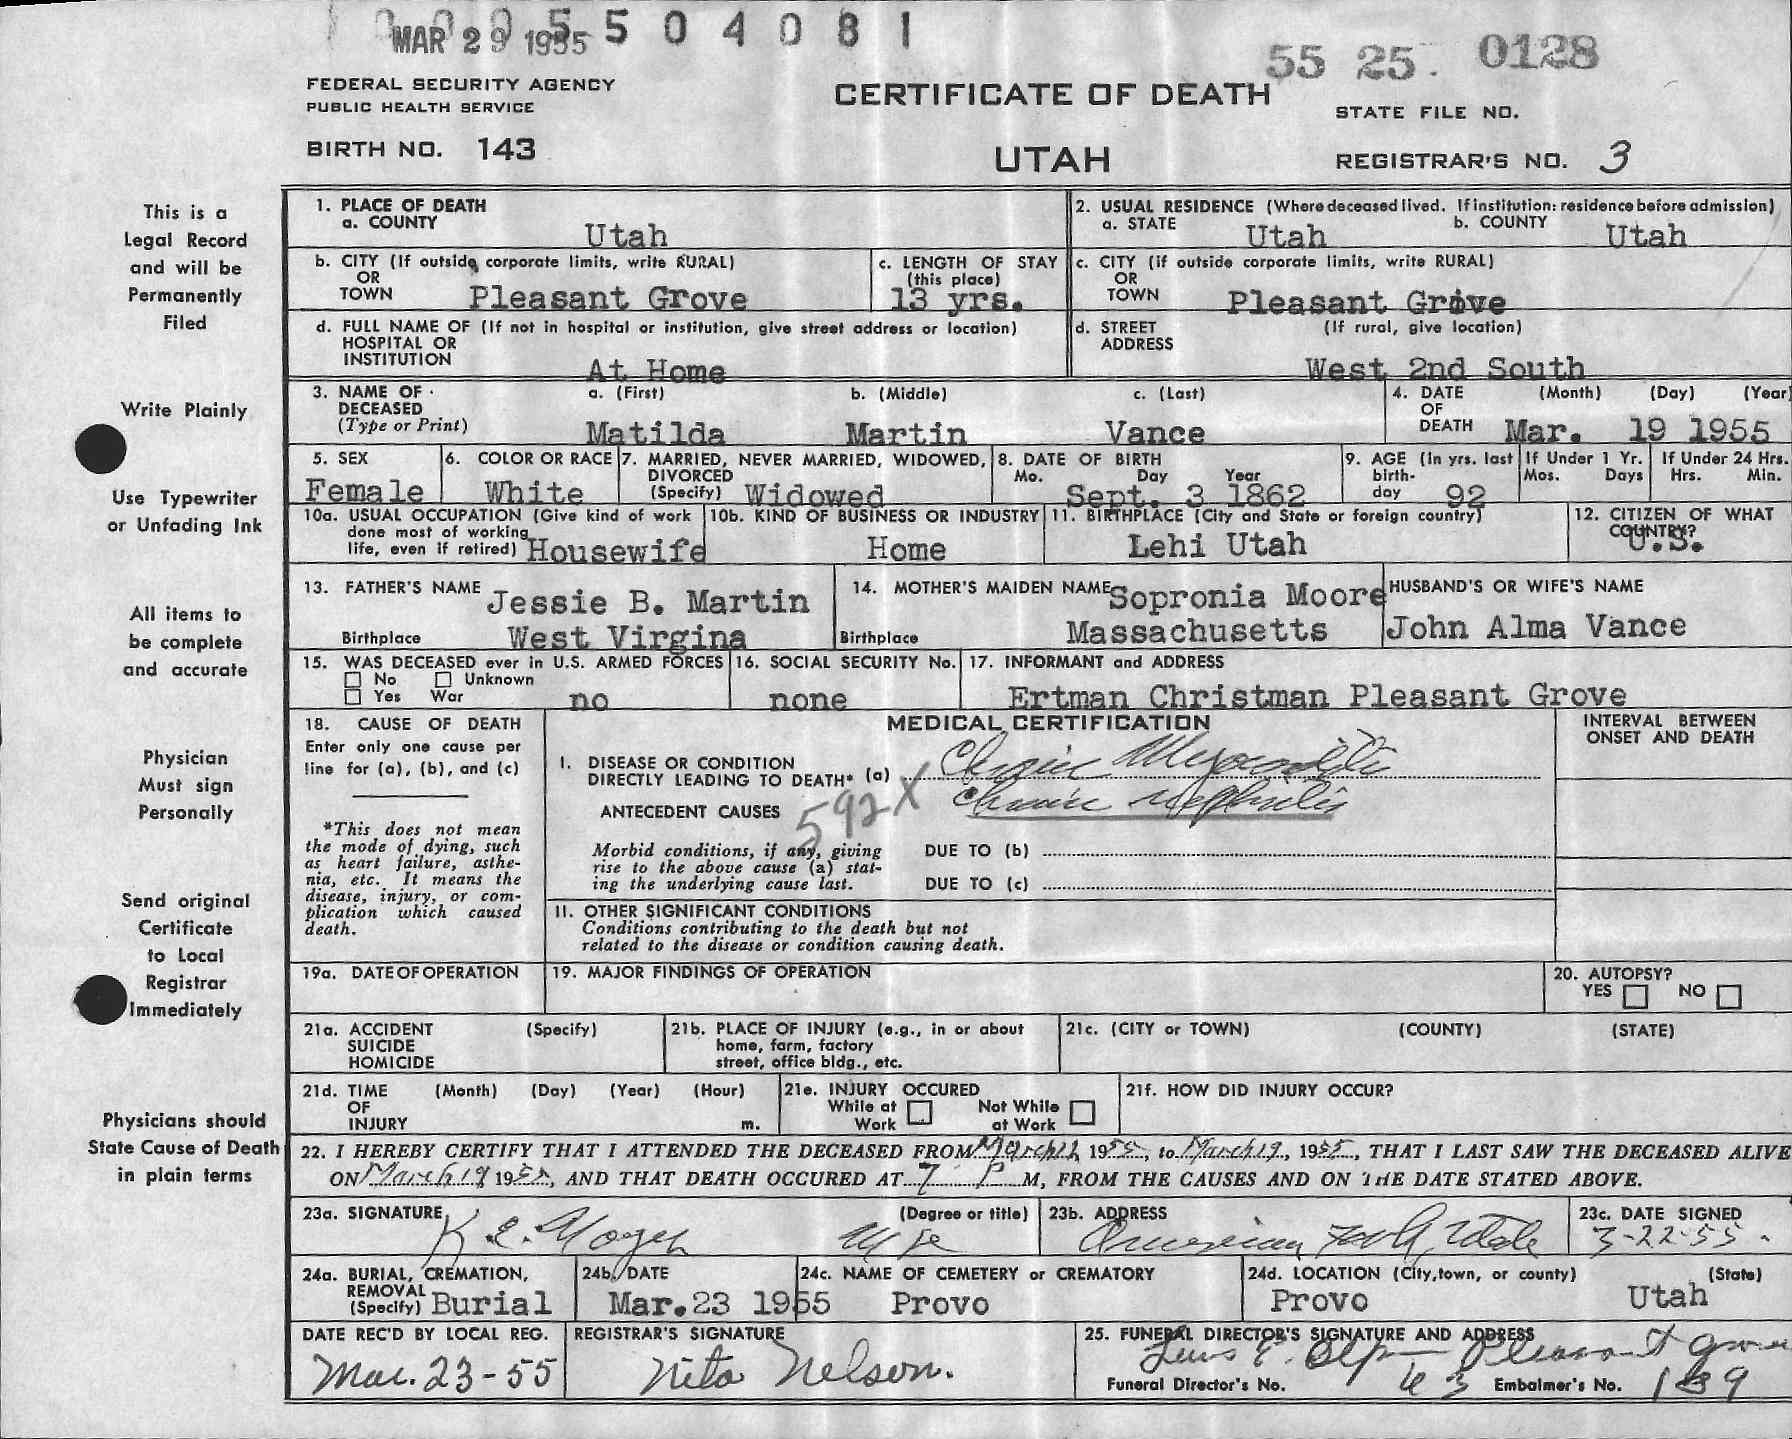 MAR 29 1955 5 0 4 0 8 1
55 25. 0128
FEDERAL SECURITY AGENCY
PUBLIC HEALTH SERVICE
CERTIFICATE OF DEATH
STATE FILE NO.
BIRTH NO. 143
UTAH
REGISTRAR'S NO. 3
This is a
Legal Record
and will be
Permanently
Filed
Write Plainly
Use Typewriter
or Unfading Ink
All items to
be complete
and accurate
Physician
Must sign
Personally
Send original
Certificate
to Local
Registrar
Immediately
Physicians should
State Cause of Death
in plain terms
1. PLACE OF DEATH
a. COUNTY
Utah
2. USUAL RESIDENCE (Where deceased lived. If institution: residence before admission)
a. STATE Utah b. COUNTY Utah
b. CITY (If outside corporate limits, write RURAL)
OR
TOWN Pleasant Grove
c. LENGTH OF STAY
(this place)
13 yrs.
c. CITY (if outside corporate limits, write RURAL)
OR
TOWN Pleasant Grove
d. FULL NAME OF (If not in hospital or institution, give street address or location)
HOSPITAL OR
INSTITUTION
At Home
d. STREET (If rural, give location)
ADDRESS
West 2nd South
3. NAME OF a. (First) b. (Middle) c. (Last)
DECEASED
(Type or Print) Matilda Martin Vance
4. DATE (Month) (Day) (Year)
OF
DEATH Mar. 19 1955
5. SEX
Female
6. COLOR OR RACE
White
7. MARRIED, NEVER MARRIED, WIDOWED,
DIVORCED
(Specify) Widowed
8. DATE OF BIRTH
Mo. Day Year
Sept. 3 1862
9. AGE (In yrs. last
birth-
day 92
If Under 1 Yr.
Mos. Days
If Under 24 Hrs.
Hrs. Min.
10a. USUAL OCCUPATION (Give kind of work
done most of working
life, even if retired) Housewife
10b. KIND OF BUSINESS OR INDUSTRY
Home
11. BIRTHPLACE (City and State or foreign country)
Lehi Utah
12. CITIZEN OF WHAT
COUNTRY?
U.S.
13. FATHER'S NAME Jessie B. Martin
Birthplace West Virgina
14. MOTHER'S MAIDEN NAME Sopronia Moore
Birthplace Massachusetts
HUSBAND'S OR WIFE'S NAME
John Alma Vance
15. WAS DECEASED ever in U.S. ARMED FORCES
No Unknown
Yes War no
16. SOCIAL SECURITY No.
none
17. INFORMANT and ADDRESS
Ertman Christman Pleasant Grove
18. CAUSE OF DEATH
Enter only one cause per
line for (a), (b), and (c)
*This does not mean
the mode of dying, such
as heart failure, asthe-
nia, etc. It means the
disease, injury, or com-
plication which caused
death.
MEDICAL CERTIFICATION
INTERVAL BETWEEN
ONSET AND DEATH
I. DISEASE OR CONDITION
DIRECTLY LEADING TO DEATH* (a) Chronic Myocarditis
ANTECEDENT CAUSES 592X Chronic nephritis
Morbid conditions, if any, giving
rise to the above cause (a) stat-
ing the underlying cause last.
DUE TO (b)
DUE TO (c)
II. OTHER SIGNIFICANT CONDITIONS
Conditions contributing to the death but not
related to the disease or condition causing death.
19a. DATE OF OPERATION
19. MAJOR FINDINGS OF OPERATION
20. AUTOPSY?
YES NO
21a. ACCIDENT (Specify)
SUICIDE
HOMICIDE
21b. PLACE OF INJURY (e.g., in or about
home, farm, factory
street, office bldg., etc.
21c. (CITY or TOWN) (COUNTY) (STATE)
21d. TIME (Month) (Day) (Year) (Hour)
OF
INJURY m.
21e. INJURY OCCURED
While at Not While
Work at Work
21f. HOW DID INJURY OCCUR?
22. I HEREBY CERTIFY THAT I ATTENDED THE DECEASED FROM March 1955, to March 19, 1955, THAT I LAST SAW THE DECEASED ALIVE
ON March 19 1955, AND THAT DEATH OCCURED AT 7 P M, FROM THE CAUSES AND ON THE DATE STATED ABOVE.
23a. SIGNATURE (Degree or title)
K. E.
23b. ADDRESS
American Fork, Utah
23c. DATE SIGNED
3-22-55.
24a. BURIAL, CREMATION,
REMOVAL
(Specify) Burial
24b. DATE
Mar.23 1955
24c. NAME OF CEMETERY or CREMATORY
Provo
24d. LOCATION (City, town, or county) (State)
Provo Utah
DATE REC'D BY LOCAL REG.
Mar. 23-55
REGISTRAR'S SIGNATURE
Nita Nelson.
25. FUNERAL DIRECTOR'S SIGNATURE AND ADDRESS
E. Olpin Pleasant Grove
Funeral Director's No. 63 Embalmer's No. 189